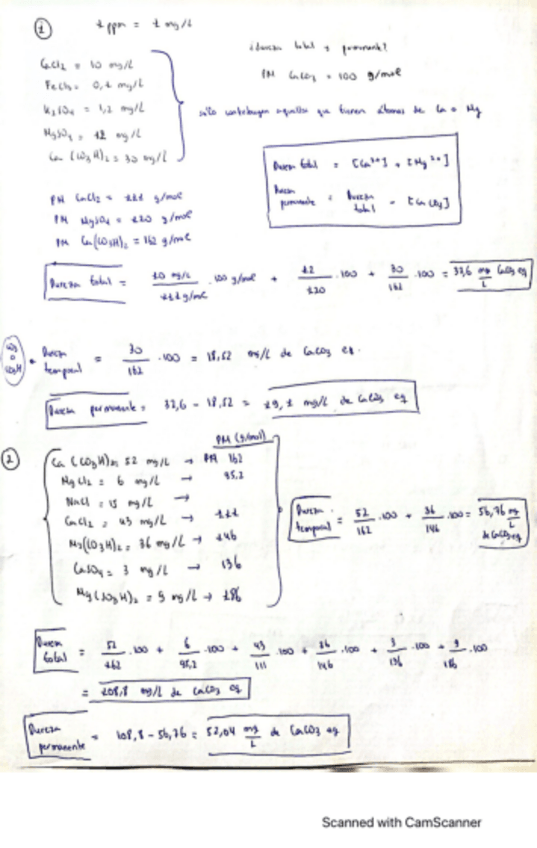 1
1 ppm = 1 mg/L
CaCl₂ = 10 mg/L
FeCl₃ = 0,1 mg/L
K₂SO₄ = 1,2 mg/L
MgSO₄ = 12 mg/L
Ca (CO₃H)₂ = 30 mg/L
total y permanente?
PM CaCO₃ = 100 g/mol
sólo contribuyen aquellos que tienen átomos de Ca o Mg
Dureza total = [Ca²⁺] + [Mg²⁺]
Dureza permanente = Dureza total -
PM CaCl₂ = 111 g/mol
PM MgSO₄ = 120 g/mol
PM Ca(CO₃H)₂ = 162 g/mol
Dureza total = 10 mg/L / 111 g/mol · 100 g/mol + 12 / 120 · 100 + 30 / 162 · 100 = 37,6 mg/L CaCO₃ eq
CO₃ o CO₃H
Dureza temporal = 30 / 162 · 100 = 18,52 mg/L de CaCO₃ eq.
Dureza permanente = 37,6 - 18,52 = 19,1 mg/L de CaCO₃ eq
2
PM (g/mol)
Ca (CO₃H)₂ = 52 mg/L → PM 162
MgCl₂ = 6 mg/L → 95,2
NaCl = 15 mg/L →
CaCl₂ = 43 mg/L → 111
Mg(CO₃H)₂ = 36 mg/L → 146
CaSO₄ = 3 mg/L → 136
Mg (CO₃H)₂ = 9 mg/L → 186
Dureza temporal = 52 / 162 · 100 + 36 / 146 · 100 = 56,76 mg/L de CaCO₃ eq
Dureza total = 52 / 162 · 100 + 6 / 95,2 · 100 + 43 / 111 · 100 + 36 / 146 · 100 + 3 / 136 · 100 + 9 / 186 · 100
= 108,8 mg/L de CaCO₃ eq
Dureza permanente = 108,8 - 56,76 = 52,04 mg/L de CaCO₃ eq
Scanned with CamScanner